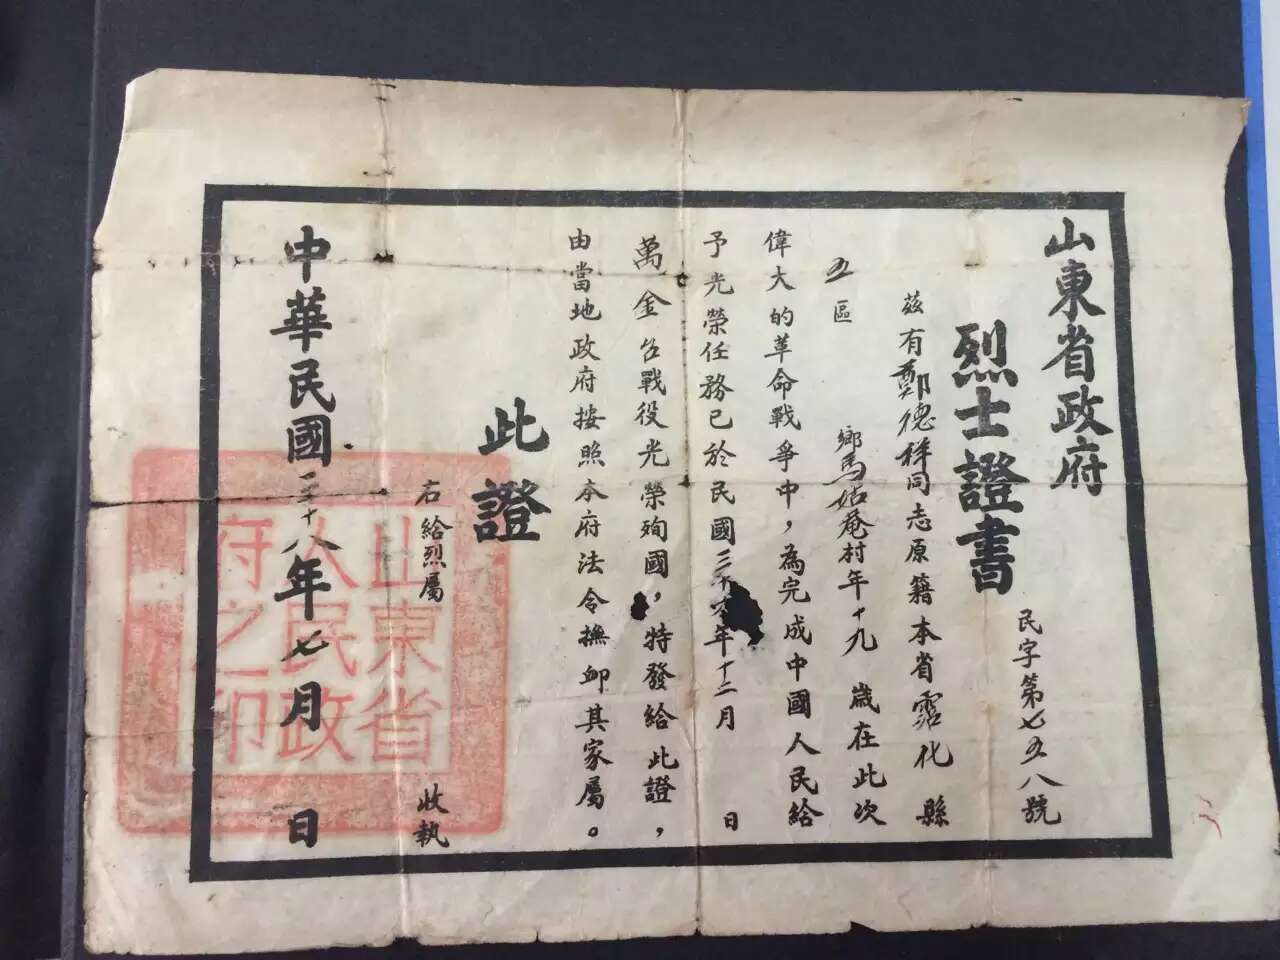 山東省政府
烈士證書
民字第七五八號
茲有鄭德祥同志原籍本省霑化縣
五區 鄉馬姑庵村年十九 歲在此次
偉大的革命戰爭中，為完成中國人民給
予光榮任務已於民國三十 年十二月 日
萬金台戰役光榮殉國，特發給此證，
由當地政府按照本府法令撫卹其家屬。
此證
右給烈屬 收執
中華民國三十八年七月 日
山東省
人民政
府之印